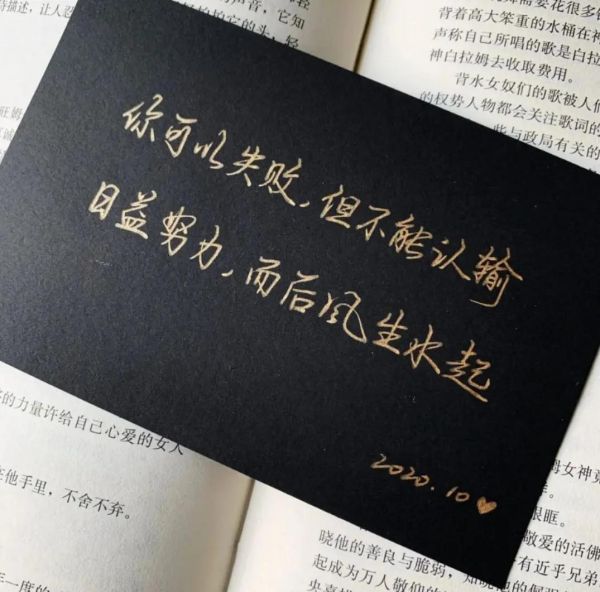 你可以失败，但不能认输
日益努力，而后风生水起
2020.10
描述，让人忍
背着高大笨重的水桶在神
声称自己所唱的歌是白拉
神白拉姆去收取费用。
背水女奴们的歌被人们
的权势人物都会关注歌词的
些与政局有关的
的力量许给自己心爱的女人
在他手里，不舍不弃。
年一度的
姆女神竟
眼眶
敬爱的活佛
晓他的善良与脆弱，
有近乎兄弟
起成为万人敬仰的